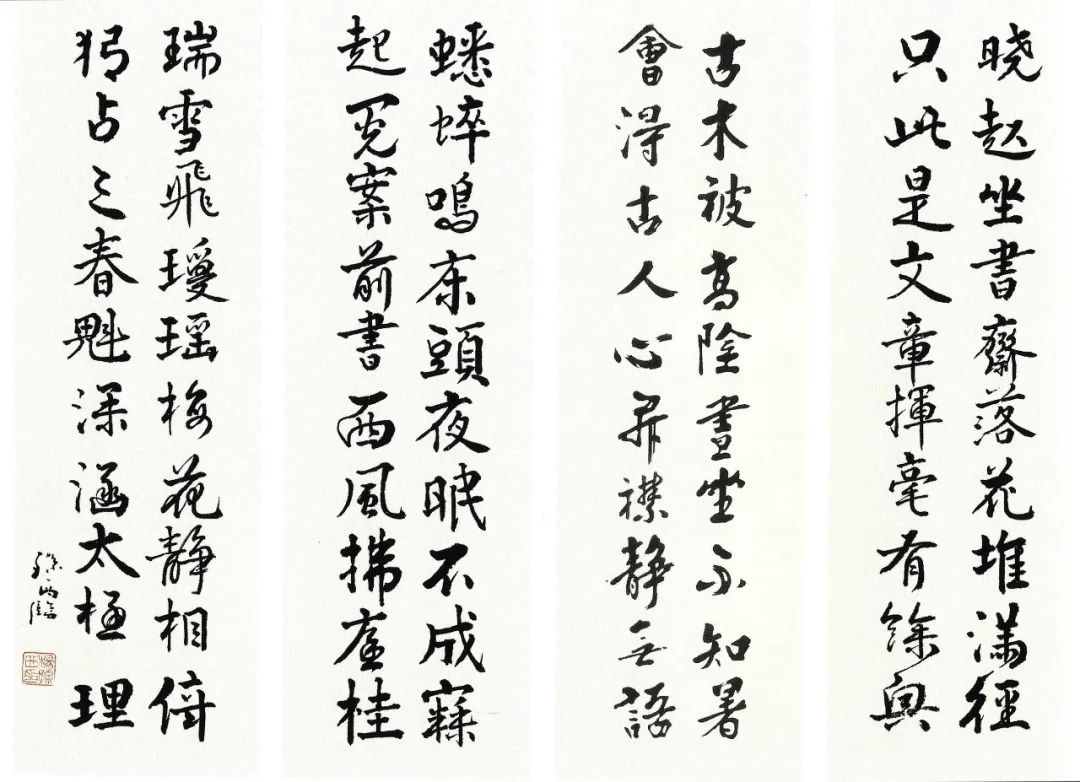 晓起坐書齋落花堆滿徑
只此是文章揮毫有餘興
古木被高陰晝坐不知暑
會得古人心開襟靜無語
蟋蟀鳴床頭夜眠不成寐
起閱案前書西風拂庭桂
瑞雪飛瓊瑤梅花靜相倚
独占三春魁深涵太極理
臨